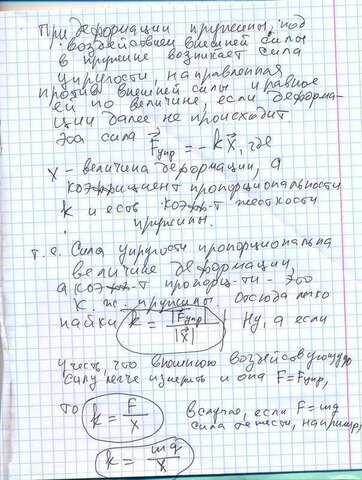 При деформации пружины, под
воздействием внешней силы
в пружине возникает сила
упругости, направленная
против внешней силы и равное
ей по величине, если деформа-
ции далее не происходит
Эта сила F⃗упр = -kx⃗, где
x - величина деформации, а
коэффициент пропорциональности
k и есть коэф-т жесткости
пружины.
т.е. Сила упругости пропорциональна
величине деформации,
а коэф-т пропорц-ти - это
к. ж. пружины. Отсюда легко
найти k = |F⃗упр| / |x⃗| Ну, а если
учесть, что внешнюю воздействующую
силу легче измерить и она F = Fупр,
то k = F/x в случае, если F = mg
сила тяжести, например,
k = mg/x